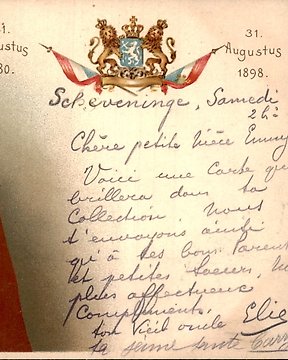 31.
Augustus
1898.
1.
ugustus
80.
Scheveningen, Samedi
2 h½
Chère petite Nièce Emmy
Voici une Carte qui
brillera dans ta
Collection. Nous
t'envoyons ainsi
qu'à tes bons Parents
et petites soeurs, nos
plus affectueux
Compliments.
ton Vieil oncle Elie
ta